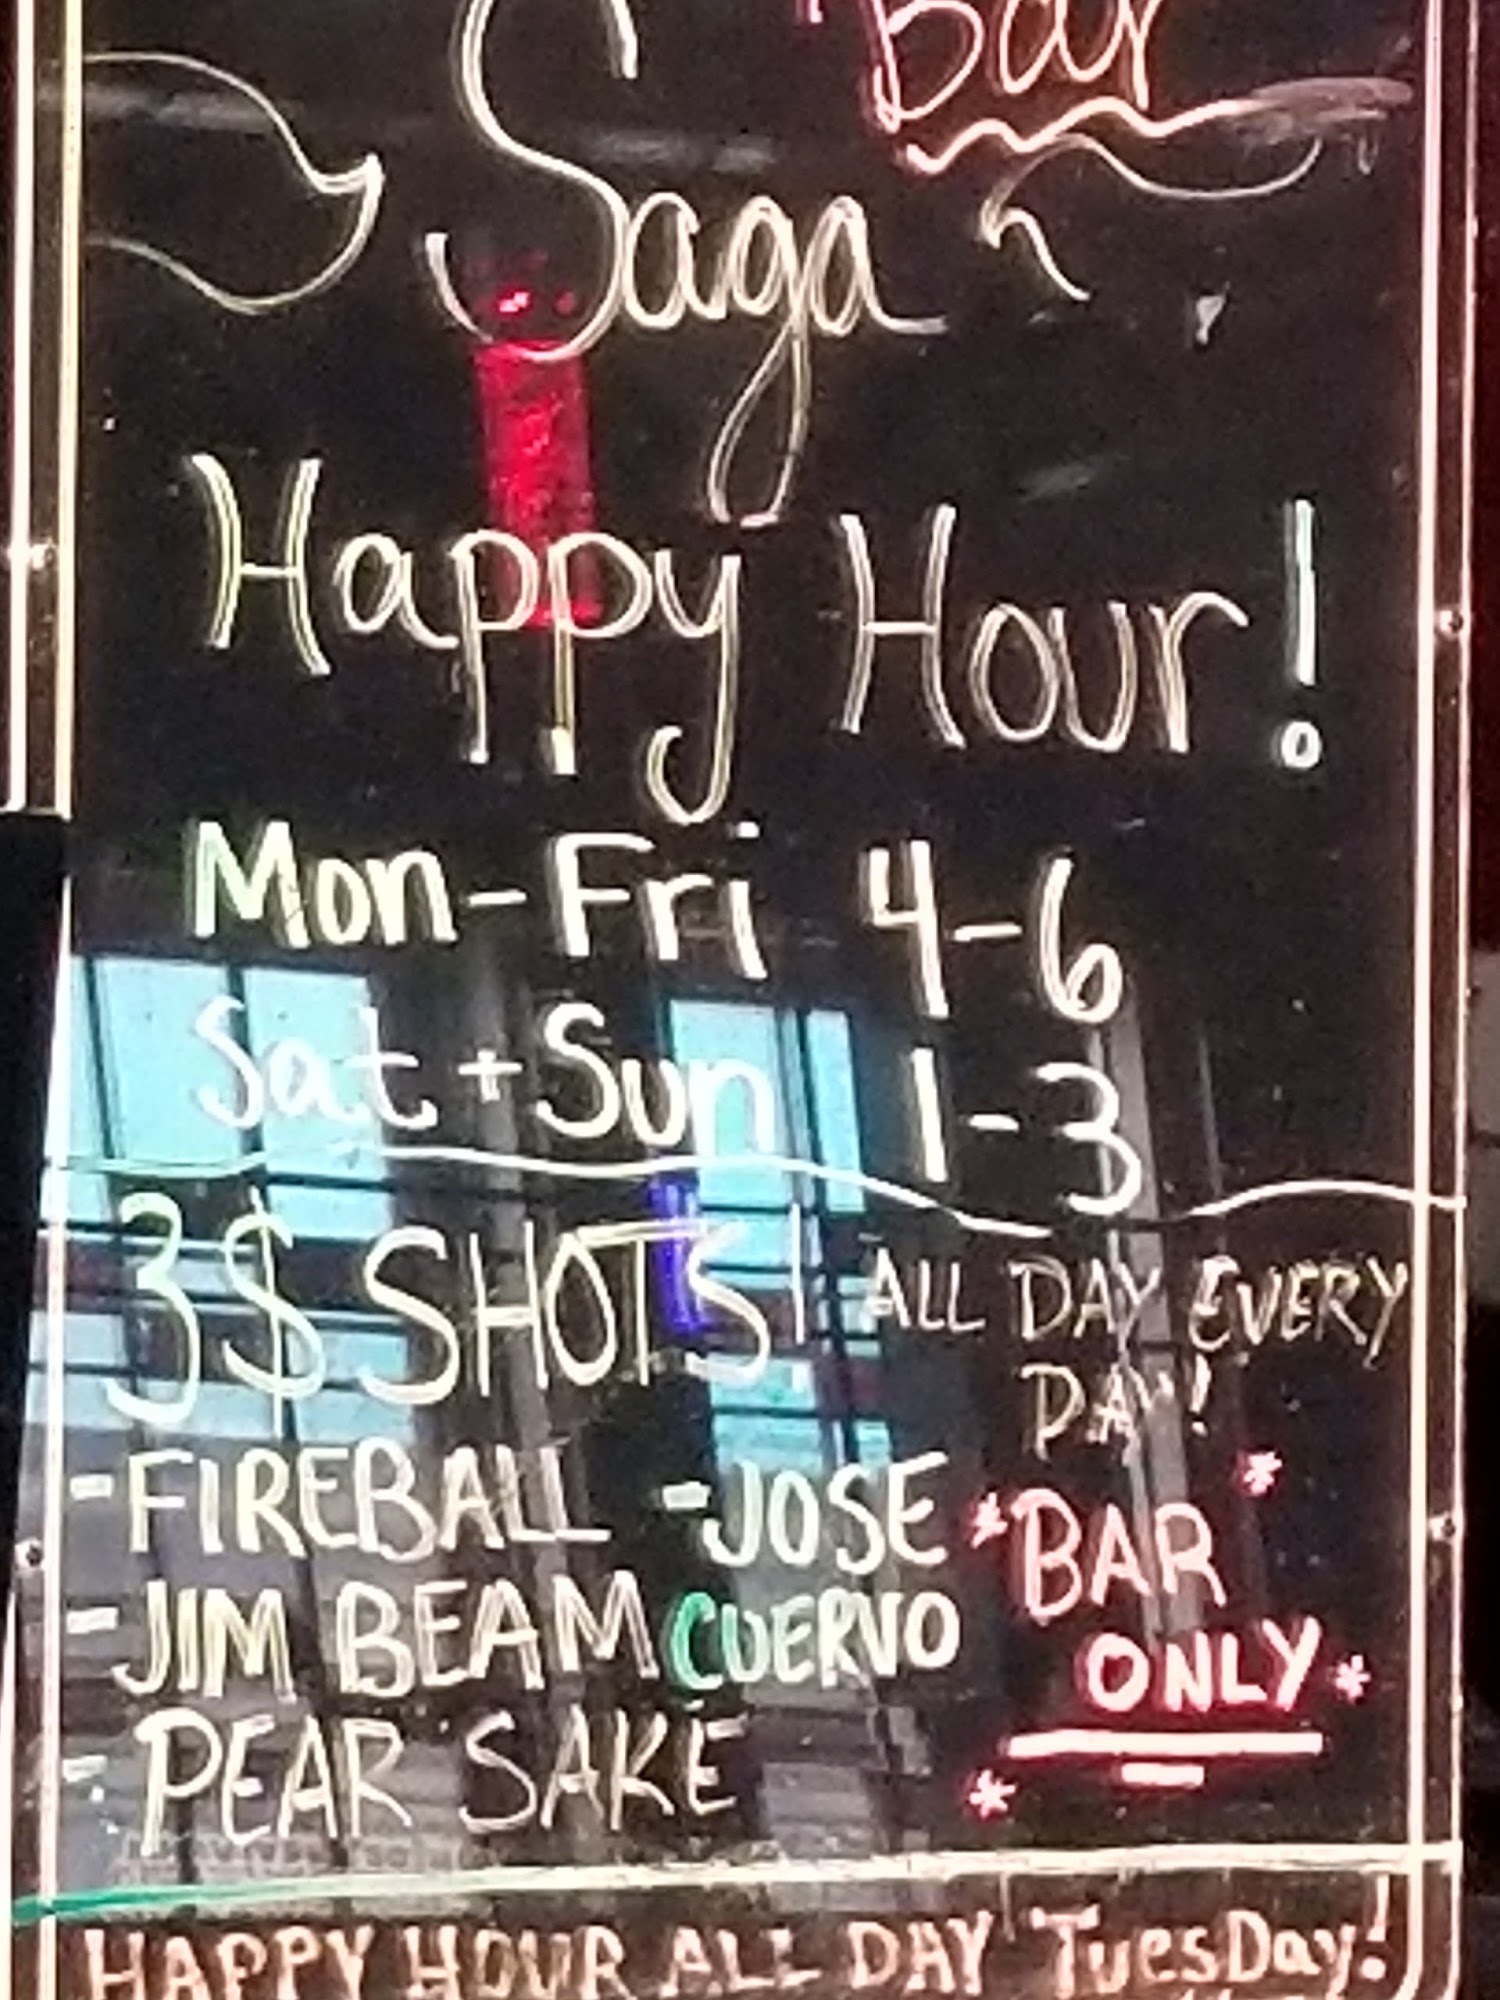 Bar
Saga
Happy Hour!
Mon-Fri 4-6
Sat + Sun 1-3
3$ SHOTS! ALL DAY EVERY
DAY!
-FIREBALL
-JIM BEAM
-PEAR SAKE
-JOSE
CUERVO
*BAR*
ONLY*
*
HAPPY HOUR ALL DAY TuesDay!